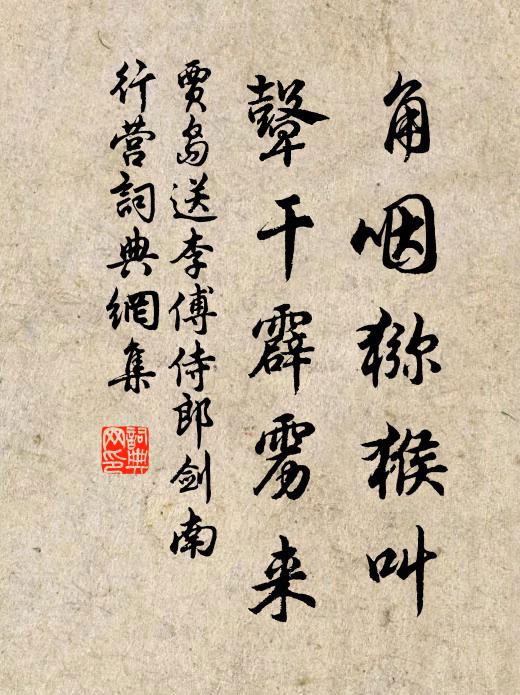 角咽猕猴叫
鼙干霹雳来
贾岛送李傅侍郎剑南
行营詞典網集
詞典
网印